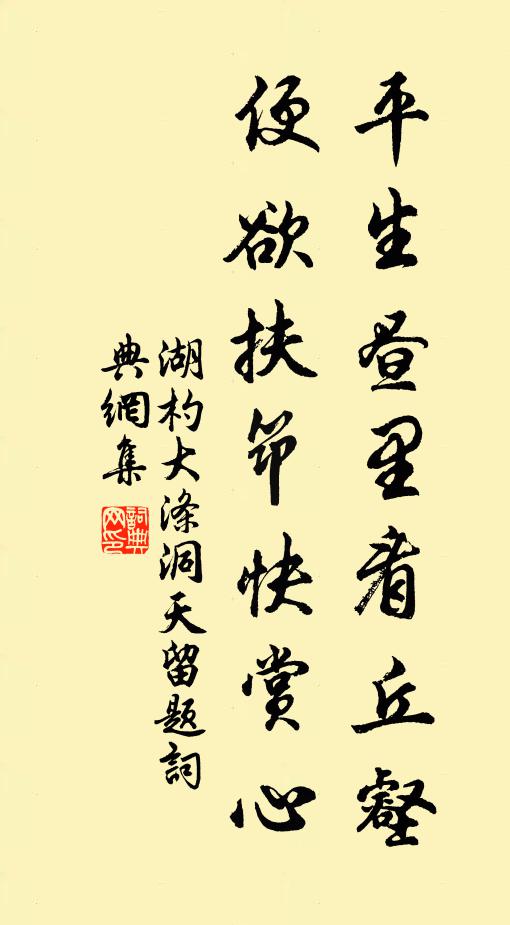 平生畫里看丘壑
便欲扶筇快賞心
湖杓大涤洞天留題詞
典網集
詞典网印